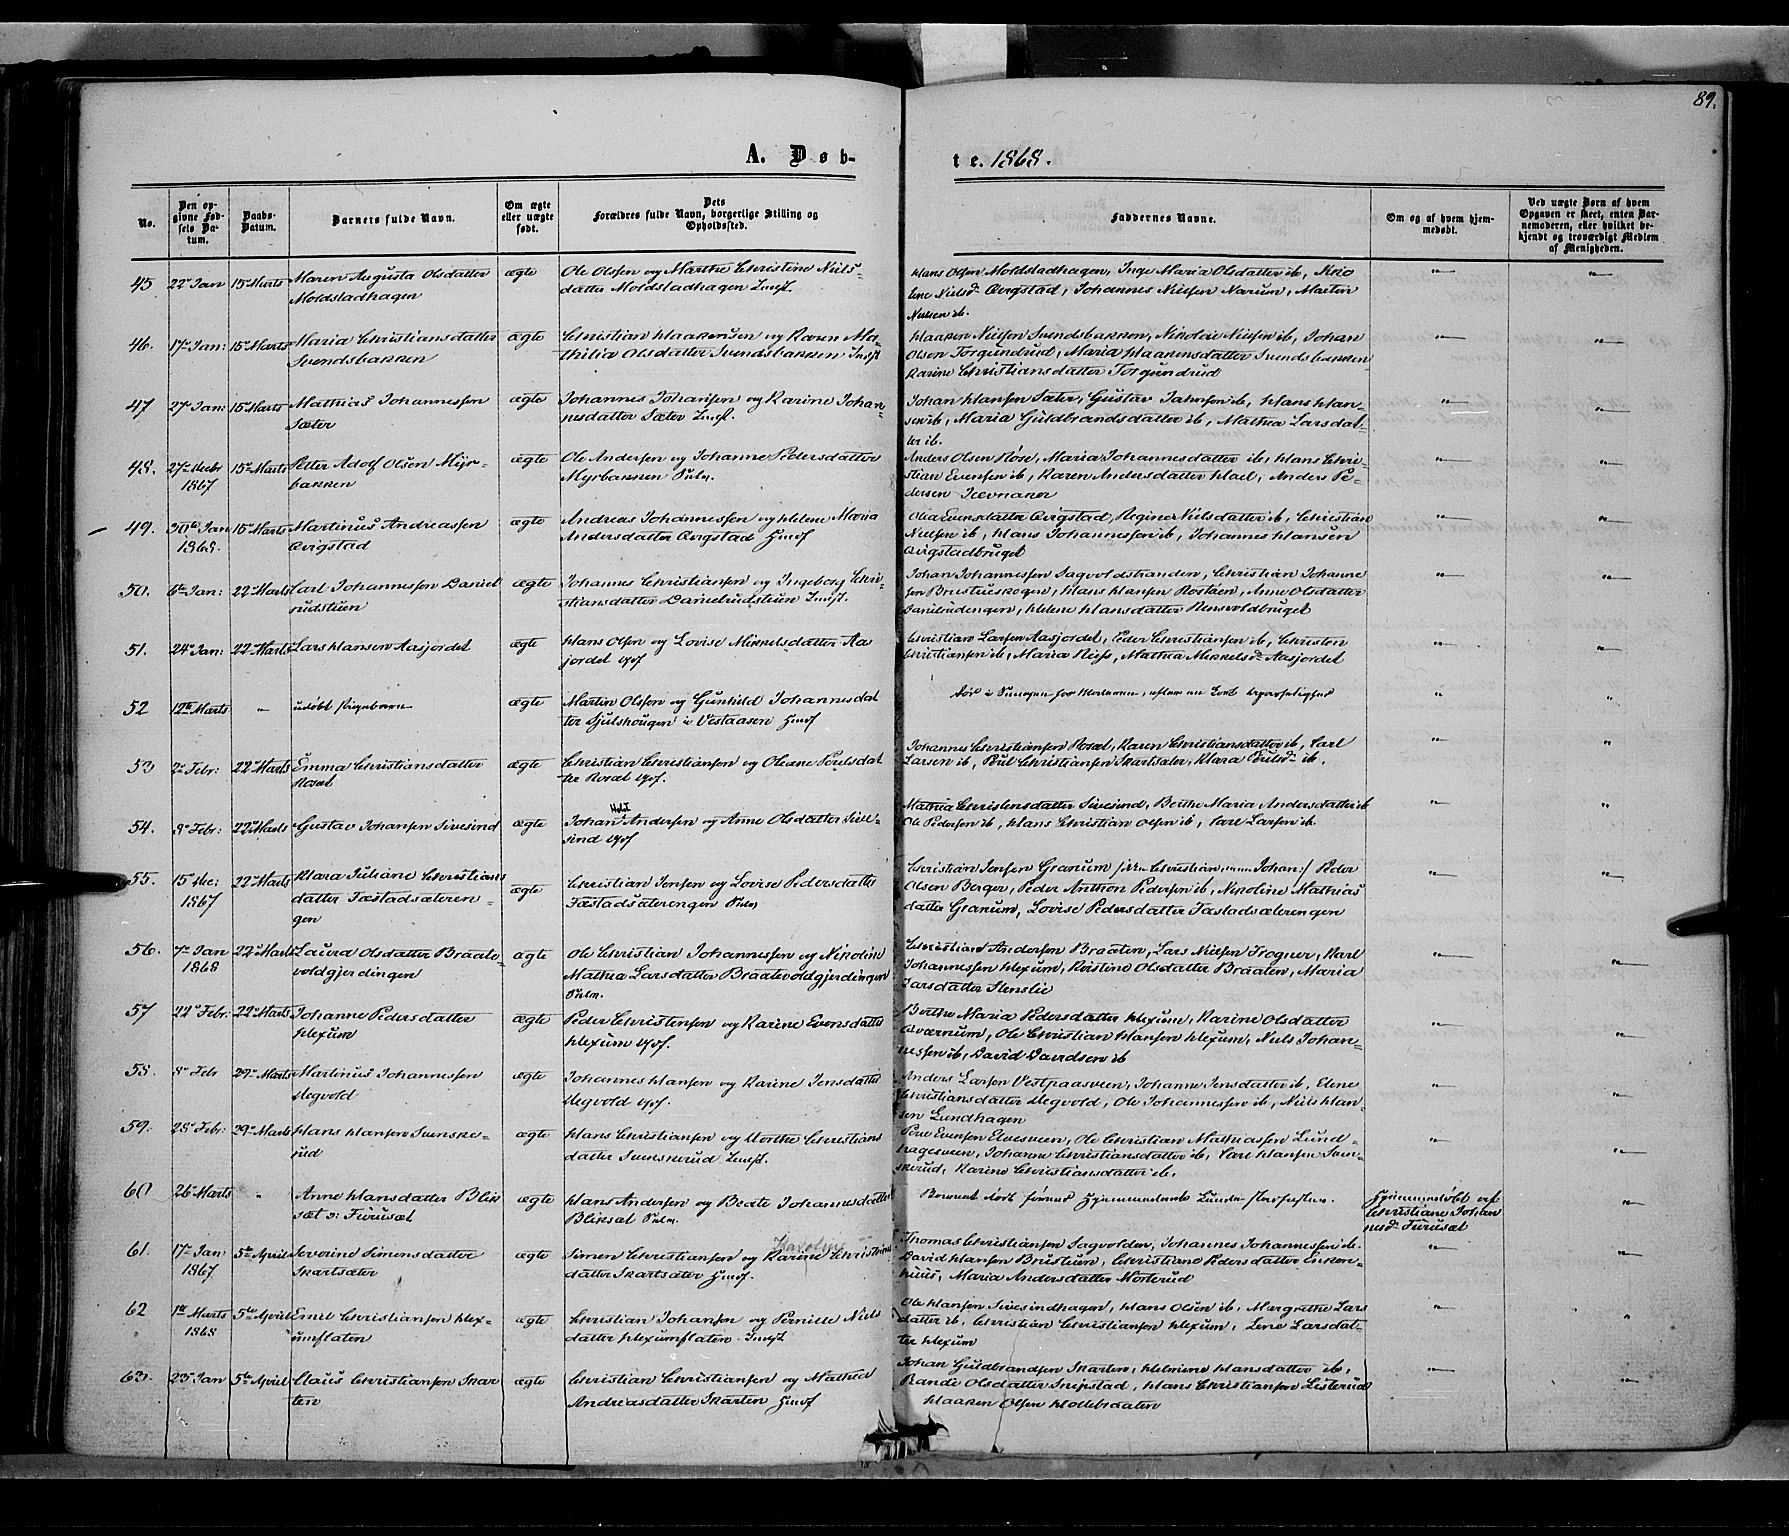 89.
A. Døb-
te. 1868.
No.
Den op-
givne Fød-
sels Da-
tum.
Daabs-
Datum.
Barnets fulde Navn.
Om ægte
eller uægte
født.
Dets
Forældres fulde Navn, borgerlige Stilling og
Opholdssted.
Faddernes Navne.
Om og af hvem hjem-
medøbt.
Ved uægte Børn af hvem
Opgaven er skeet, enten Bar-
nemoderen, eller hvilket be-
kjendt og troværdigt Medlem
af Menigheden.
45 22de Jan 15de Marts Maren Augusta Olsdatter
Moldstadhagen
ægte
Ole Olsen og Marthe Christine Niels-
datter Moldstadhagen
Hans Olsen Moldstadhagen, Inge Maria Olsdatter ib,
Nielsd. Avgstad, Johannes Nielsen Narum, Martin
Nielsen ib.
46. 17de Jan: 15de Marts Maria Christiansdatter
Svendsbakken
ægte
Christian Haakensen og Karen Ma-
thilia Olsdatter Svendsbakken
Haaken Nielsen Svendsbakken, Nikolai Nielsen ib, Johan
Olsen Torgundrud, Maria Haakensdatter Svendsbakken
Karine Christiansdatter Torgundrud
47 27de Jan: 15de Marts Mathias Johannessen
Sæter
ægte
Johannes Johansen og Karine Johan-
nesdatter Sæter
Johan Hansen Sæter, Gustav Jahnsen ib, Hans Han-
sen ib, Maria Guldbrandsdatter ib, Mathea Larsdat-
ter ib.
48. 27de Decbr
1867
15de Marts Petter Adolf Olsen Myr-
bakken
ægte
Ole Andersen og Johanne Pedersdatter
Myrbakken
Anders Olsen Røse, Maria Johannesdatter ib, Hans Chri-
stian Evensen ib, Karen Andersdatter Hael, Anders Pe-
dersen Jævnaker
49. 30te Jan
1868.
15de Marts Martinus Andreassen
Avgstad
ægte
Andreas Johannessen og Helene Maria
Andersdatter Avgstad
Olia Evensdatter Avgstad, Regine Nielsdatter ib, Christian
Nielsen ib, Hans Johannessen ib, Johannes Hansen
Avgstadbruget
50. 6te Jan: 22de Marts Carl Johannessen Daniel
rudstuen
ægte
Johannes Christiansen og Ingeborg Chri-
stiansdatter Danielrudstuen
Johan Johannessen Sagvoldstranden, Christian Johanne
sen Brustuskogen, Hans Hansen Rostøen, Anne Olsdatter
Danielrudengen, Helene Hansdatter Rensvoldbruget
51. 24de Jan: 22de Marts Lars Hansen Aasjordet
ægte
Hans Olsen og Lovise Mikkelsdatter Aa
jordet
Christian Larsen Aasjordet, Peder Christiansen ib, Christen
Christiansen ib, Maria Røise, Mathea Mikkelsd. Aasjordet
52 12te Marts udøbt Pigebarn
ægte
Martin Olsen og Gunhild Johannesdat
ter Sjulshougen i Vestaasen
53 2de Febr: 22de Marts Emma Christiansdatter
Rosæt
ægte
Christian Christiansen og Oleane Poulsdat
ter Rosæt
Johannes Christiansen Rosæt, Karen Christiansdatter ib, Carl
Larsen ib, Poul Christiansen Skartsæter, Klara Poulsd. ib.
54. 8de Febr: 22de Marts Gustav Johansen Sivesind
ægte
Holst
Johan Andersen og Anne Olsdatter Sive-
sind
Mathea Christensdatter Sivesind, Berthe Maria Andersdatter ib
Ole Pedersen ib, Hans Christian Olsen ib, Carl Larsen ib.
55. 15de Dec:
1867
22de Marts Klara Juliane Christians
datter Fæstadsæteren-
gen
ægte
Christian Jensen og Lovise Pedersdatter
Fæstadsæterengen
Christian Jensen Granum Peder
Olsen Berger, Peder Anthon Pedersen ib, Nikoline Mathias
datter Granum, Lovise Pedersdatter Fæstadsæterengen
56. 7de Jan
1868
22de Marts Laura Olsdatter Braate-
voldgjerdingen
ægte
Ole Christian Johannessen og Nikoline
Mathea Larsdatter Braatevoldgjerdingen
Christian Andersen Braaten, Lars Nielsen Frogner, Karl
Johannessen Hexum, Kristine Olsdatter Braaten, Maria
Larsdatter Stenslie
57 22de Febr: 22de Marts Johanne Pedersdatter
Hexum
ægte
Peder Christensen og Karine Evensdatter
Hexum
Berthe Maria Pedersdatter Hexum, Karine Olsdatter
Qværnum, Ole Christian Hansen Hexum, Niels Johan-
nessen ib, David Davidsen ib
58. 8de Febr 29de Marts Martinus Johannessen
Hegvold
ægte
Johannes Hansen og Karine Jensdatter
Hegvold
Anders Larsen Vestpaasveen, Johanne Jensdatter ib, Elene
Christiansdatter Hegvold, Ole Johannessen ib, Niels Han-
sen Lundhagen
59. 28de Febr. 29de Marts Hans Hansen Svenske-
rud
ægte
Hans Christiansen og Dorthe Christians
datter Svenskerud
Evensen Elvesveen, Ole Christian Mathiassen Lund-
hagesveen, Johanne Christiansdatter ib, Carl Hansen Svens-
kerud, Karine Christiansdatter ib.
60 26de Marts Anne Hansdatter Blik
sæt Furusæt
ægte
Hans Andersen og Beate Johannesdatter
Bliksæt
Hjemmedøbt ved
Christiane Johan
nesd. Furusæt
61. 17de Jan:
1867
5te April Severine Simensdatter
Skartsæter
ægte
Simen Christiansen og Karine Christians
datter Skartsæter
Thomas Christiansen Sagvolden, Johannes Johannessen ib.
David Hansen Brustuen, Christiane Pedersdatter Enken-
huus, Maria Andersdatter Mosterud
62 1ste Marts
1868
5te April Emil Christiansen Hex-
umflaten
ægte
Christian Johansen og Pernille Niels
datter Hexumflaten
Ole Hansen Sivesindhagen, Hans Olsen ib, Margrethe Lars
datter ib, Christian Christiansen Hexum, Lene Larsdat-
ter Hexum
63. 23de Jan 5te April Claus Christiansen Skar
ten
ægte
Christian Christiansen og Mathea
Andreasdatter Skarten
Johan Guldbrandsen Skarten, Helmine Hansdatter ib,
Randi Olsdatter Snipstad, Hans Christiansen Listerud
Haaken Olsen